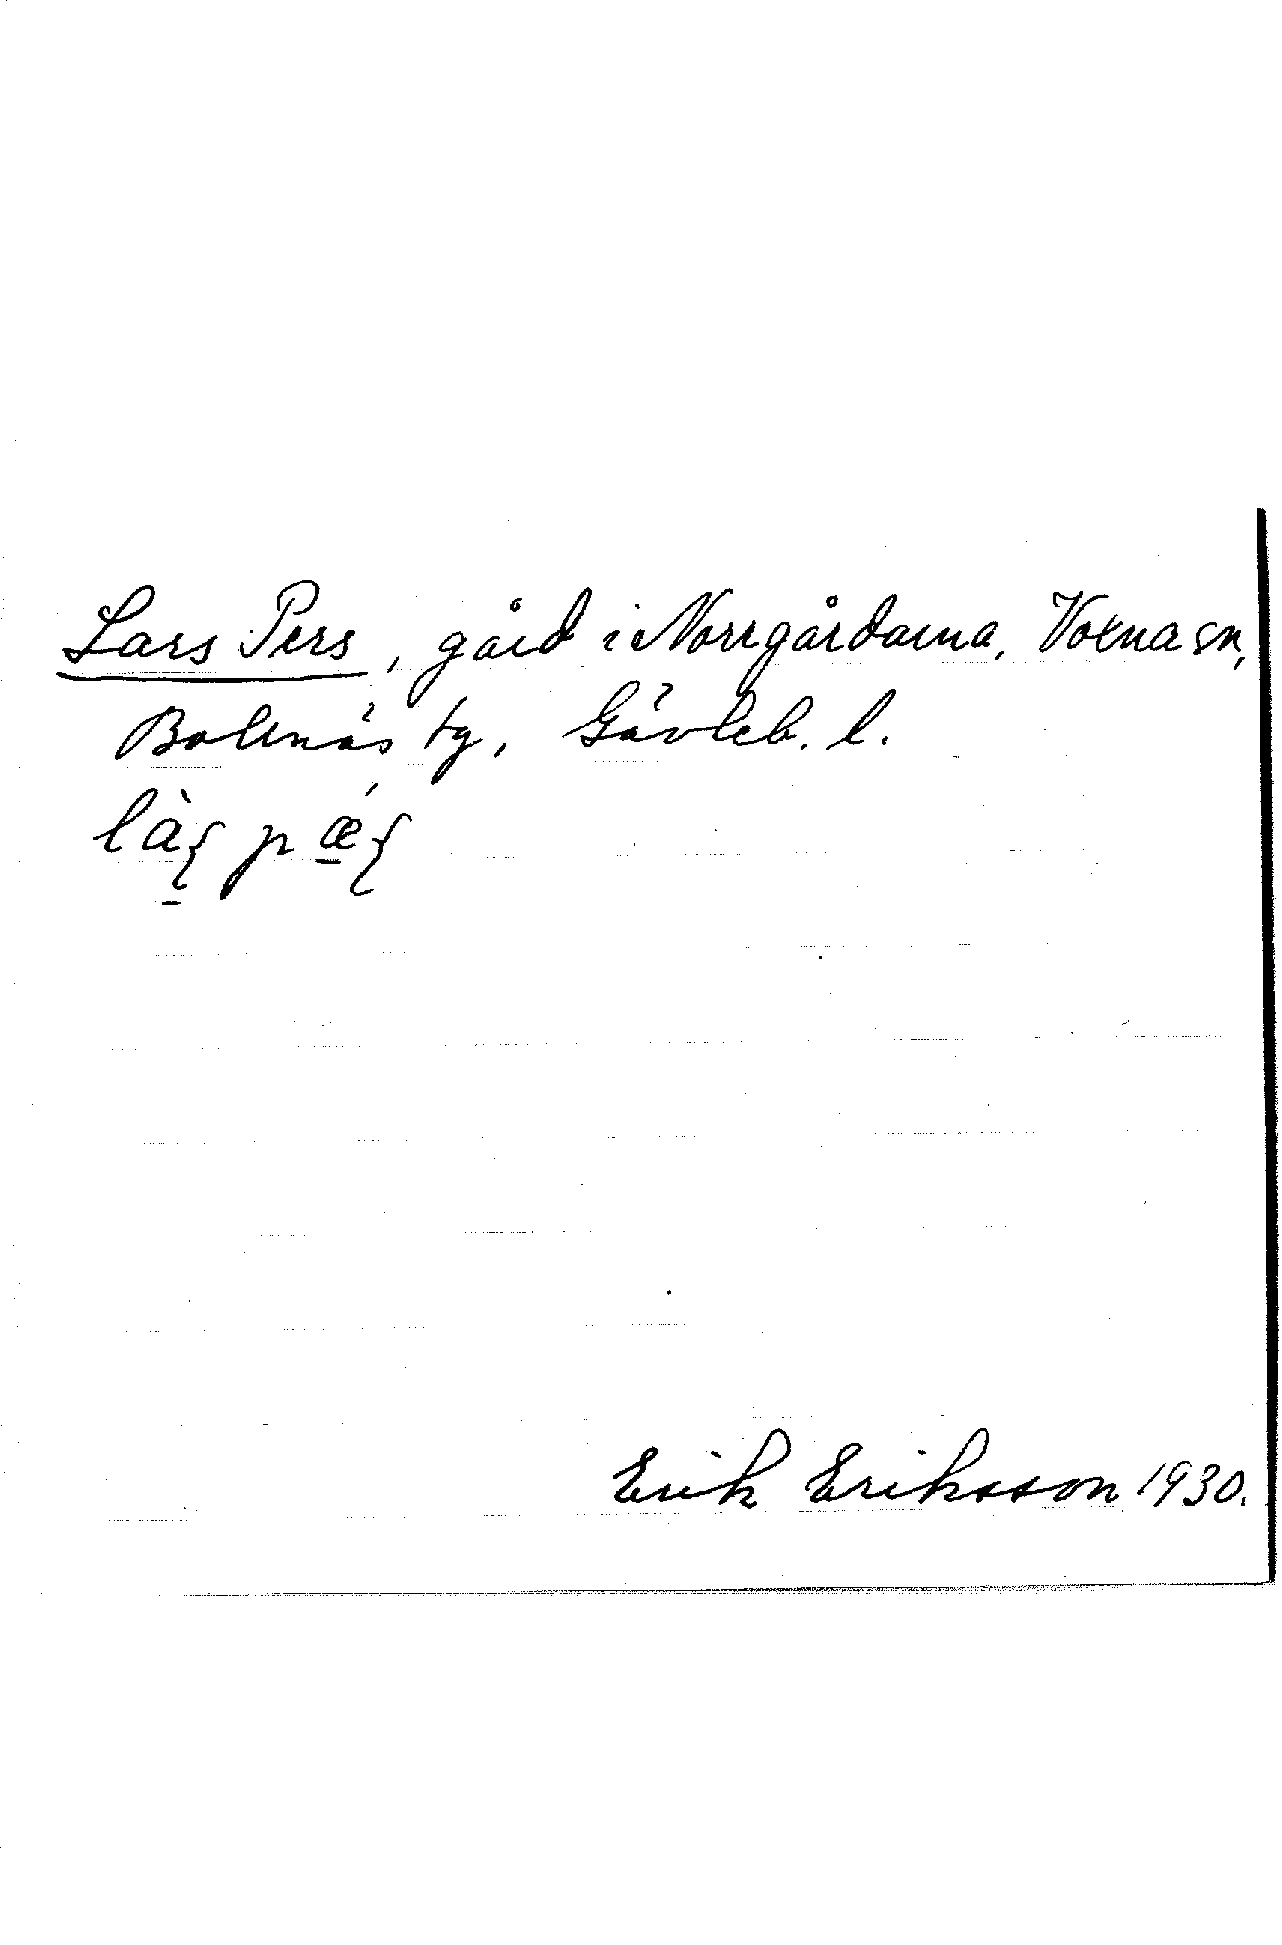 Lars Pers, gård i Norrgårdarna, Voxna sn,
Bollnäs tg, Gävleb. l.
Erik Eriksson 1930.